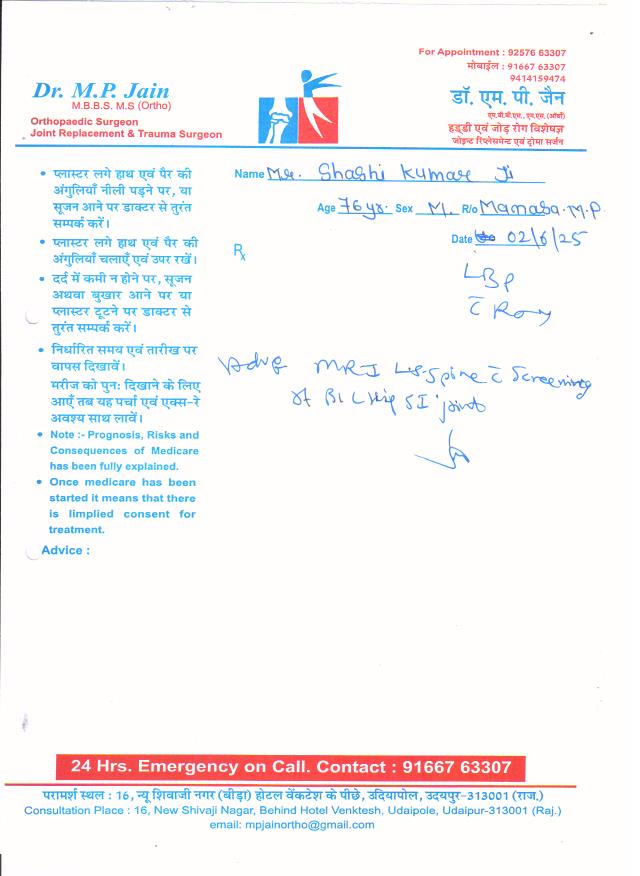 For Appointment : 92576 63307
मोबाईल : 91667 63307
9414159474
Dr. M.P. Jain
M.B.B.S. M.S (Ortho)
Orthopaedic Surgeon
Joint Replacement & Trauma Surgeon
डॉ. एम. पी. जैन
एम.बी.बी.एस., एम.एस. (ऑर्थो)
हड्डी एवं जोड़ रोग विशेषज्ञ
जोइन्ट रिप्लेसमेन्ट एवं ट्रोमा सर्जन
Name Mr. Shashi Kumar Ji
Age 76 yr. Sex M. R/o Manasa. M.P.
Date 02/6/25
Rx
LBP
c̄
Adv MRI LS-Spine c̄ Screening
of B/L Hip SI joint
• प्लास्टर लगे हाथ एवं पैर की
अंगुलियाँ नीली पड़ने पर, या
सूजन आने पर डाक्टर से तुरंत
सम्पर्क करें।
• प्लास्टर लगे हाथ एवं पैर की
अंगुलियाँ चलाएँ एवं उपर रखें।
• दर्द में कमी न होने पर, सूजन
अथवा बुखार आने पर या
प्लास्टर टूटने पर डाक्टर से
तुरंत सम्पर्क करें।
• निर्धारित समय एवं तारीख पर
वापस दिखावें।
मरीज को पुनः दिखाने के लिए
आएँ तब यह पर्चा एवं एक्स-रे
अवश्य साथ लावें।
• Note :- Prognosis, Risks and
Consequences of Medicare
has been fully explained.
• Once medicare has been
started it means that there
is limplied consent for
treatment.
Advice :
24 Hrs. Emergency on Call. Contact : 91667 63307
परामर्श स्थल : 16, न्यू शिवाजी नगर (बीड़ा) होटल वेंकटेश के पीछे, उदियापोल, उदयपुर-313001 (राज.)
Consultation Place : 16, New Shivaji Nagar, Behind Hotel Venktesh, Udaipole, Udaipur-313001 (Raj.)
email: mpjainortho@gmail.com